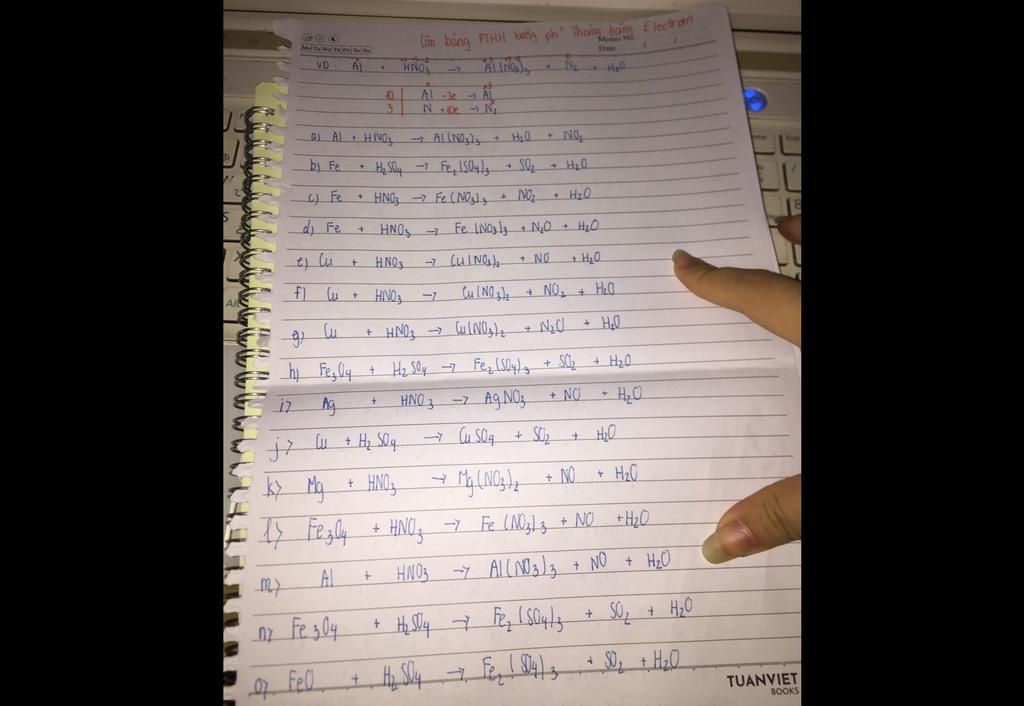 Cân bằng PTHH bằng ph² Thăng bằng Electron
Memo No.
Mo Tu We Th Fr Sa Su
Date / /
VD: Al + HNO₃ → Al(NO₃)₃ + N₂ + H₂O
10 | Al -3e → Al
3 | N +10e → N₂
a) Al + HNO₃ → Al(NO₃)₃ + H₂O + NO₂
b) Fe + H₂SO₄ → Fe₂(SO₄)₃ + SO₂ + H₂O
c) Fe + HNO₃ → Fe(NO₃)₃ + NO₂ + H₂O
d) Fe + HNO₃ → Fe(NO₃)₃ + N₂O + H₂O
e) Cu + HNO₃ → Cu(NO₃)₂ + NO + H₂O
f) Cu + HNO₃ → Cu(NO₃)₂ + NO₂ + H₂O
g) Cu + HNO₃ → Cu(NO₃)₂ + N₂O + H₂O
h) Fe₃O₄ + H₂SO₄ → Fe₂(SO₄)₃ + SO₂ + H₂O
i> Ag + HNO₃ → AgNO₃ + NO + H₂O
j> Cu + H₂SO₄ → CuSO₄ + SO₂ + H₂O
k> Mg + HNO₃ → Mg(NO₃)₂ + NO + H₂O
l> Fe₃O₄ + HNO₃ → Fe(NO₃)₃ + NO + H₂O
m> Al + HNO₃ → Al(NO₃)₃ + NO + H₂O
n> Fe₃O₄ + H₂SO₄ → Fe₂(SO₄)₃ + SO₂ + H₂O
o> FeO + H₂SO₄ → Fe₂(SO₄)₃ + SO₂ + H₂O
TUANVIET
BOOKS